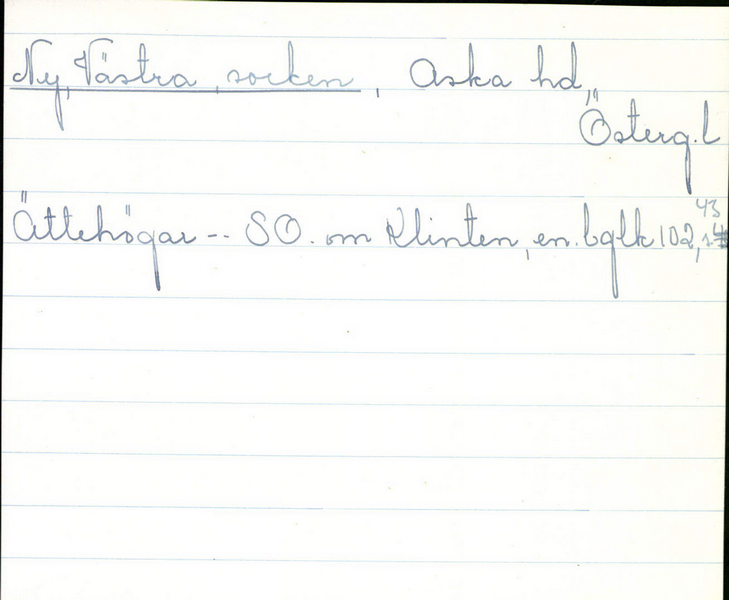 Ny, Västra, socken, Aska hd,
Österg. l
Ättehögar -- SO. om Klinten, en. bglk 102,
43